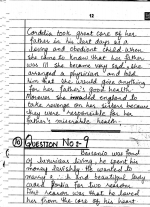 12
Cordelia took great care of her
father in his last days as a
loving and obedient child. When
she came to know that her father
was ill she became very sad, she
arranged a physician and told
him that she would give anything
for her father's good health.
However she invaded england to
take revenge on her sisters because
they were responsible for her
father's miserable health.
QUESTION NO:- 9
Bassanio was fond
of luxurious living, he spent his
money lavishly. He wanted to
marry a rich and beautiful lady
called Portia for two reasons.
First reason was that he loved
her from the core of his heart